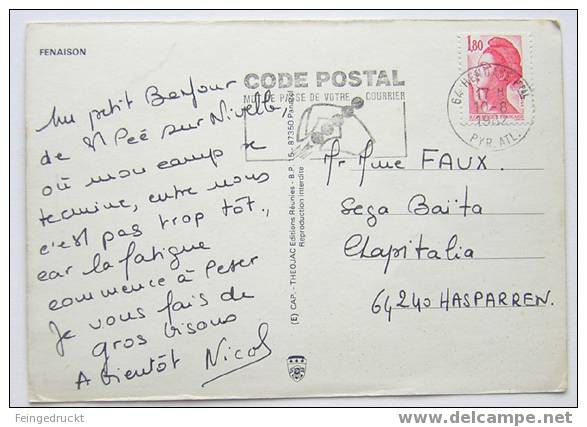 FENAISON
Un petit Bonjour
de St Peé sur Nivelle,
où mon camp se
termine, entre nous
c'est pas trop tôt,
car la fatigue
commence à Peser
Je vous fais de
gros bisous
A bientôt Nicol
(E) CAP. - THEOJAC Editions Réunies - B.P. 15 - 87350 Panazol
Reproduction interdite
CODE POSTAL
MOT DE PASSE DE VOTRE COURRIER
1,80
64 HENDAYE
17 H
10-8
1982
PYR. ATL.
Mr Mme FAUX.
Sega Baïta
Chapitalia
64240 HASPARREN.
Feingedruckt
www.delcampe.net